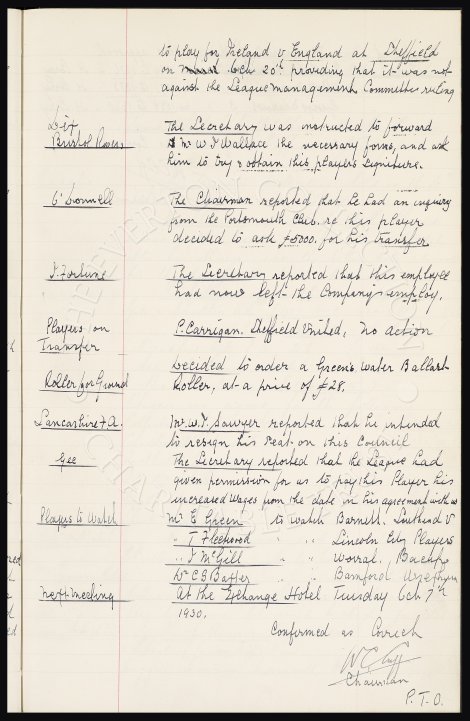 to play for Ireland v England at Sheffield
on Oct 20th providing that it was not
against the League management Committee ruling
Bristol Rovers
The Secretary was instructed to forward
Mr W J Wallace the necessary forms, and ask
him to try & obtain this players signature.
O'Donnell
The Chairman reported that he had an inquiry
from the Portsmouth Club. re this player
decided to ask £5000. for his transfer
J. Fortune
The Secretary reported that this employee
had now left the Company's employ.
Players on
Transfer
P. Carrigan. Sheffield United, no action
Roller for Ground
Decided to order a Green's Water Ballast
Roller, at a price of £28.
Lancashire F.A.
Mr. W. J. Sawyer reported that he intended
to resign his seat on this Council
Gee
The Secretary reported that the League had
given permission for us to pay this Player his
increased wages from the date in his agreement with us
Players to Watch
Mr. E Green to watch Barnett. Southend U
" T Fleetwood " " Lincoln City Players
" J McGill " " Worral, Bacup
Mr C S Baxter " " Bamford
Next Meeting
At the Exchange Hotel Tuesday Oct 7th
1930.
Confirmed as Correct
W C Cuff
Chairman
P.T.O.